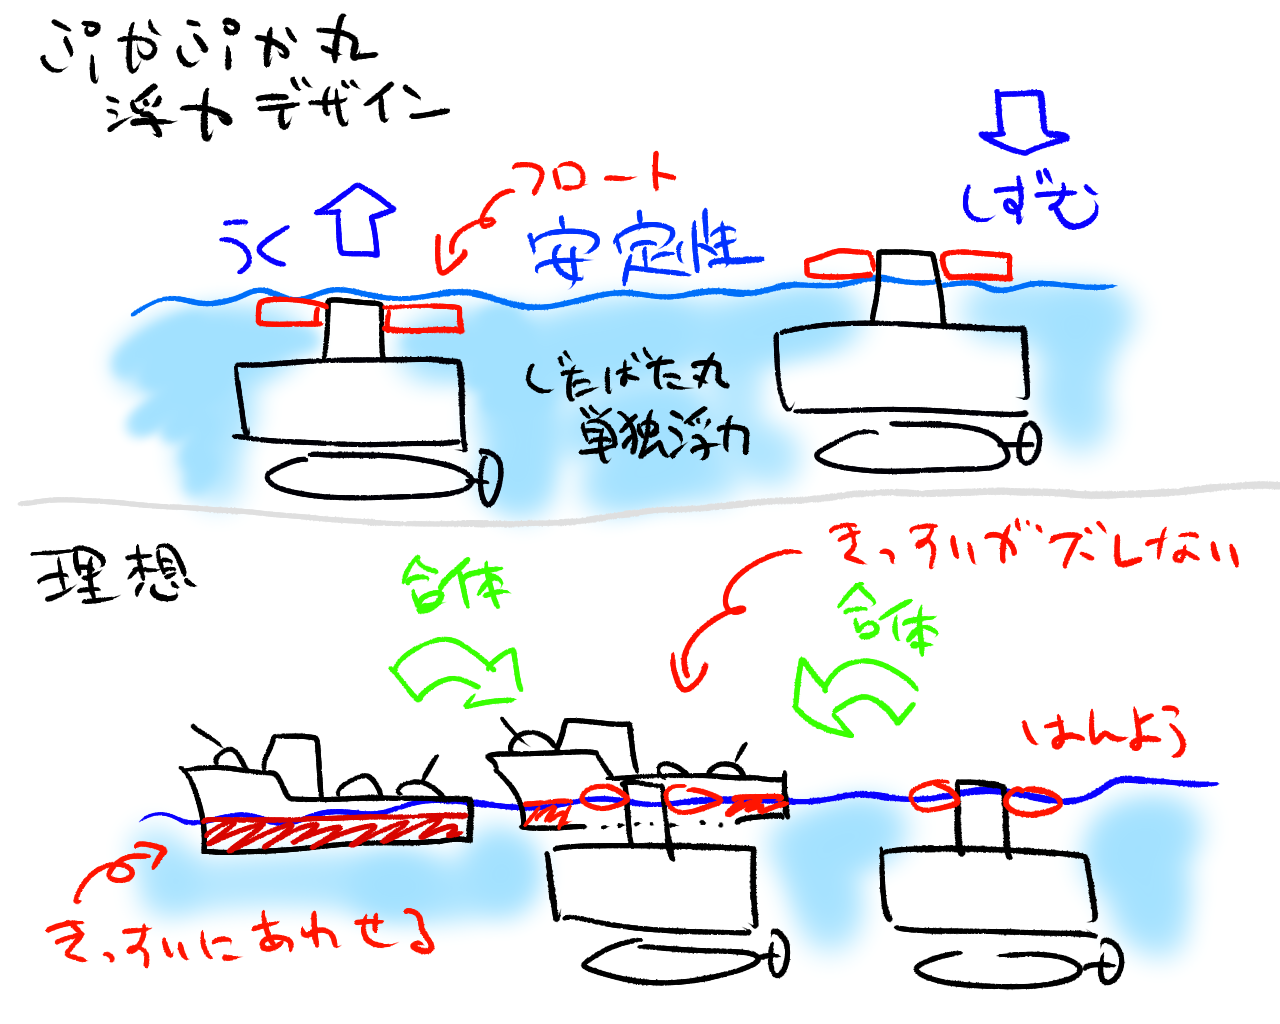 ぷかぷか丸
浮力デザイン
うく
フロート
安定性
しずむ
じたばた丸
単独浮力
理想
合体
きっすいがズレない
合体
はんよう
きっすいにあわせる